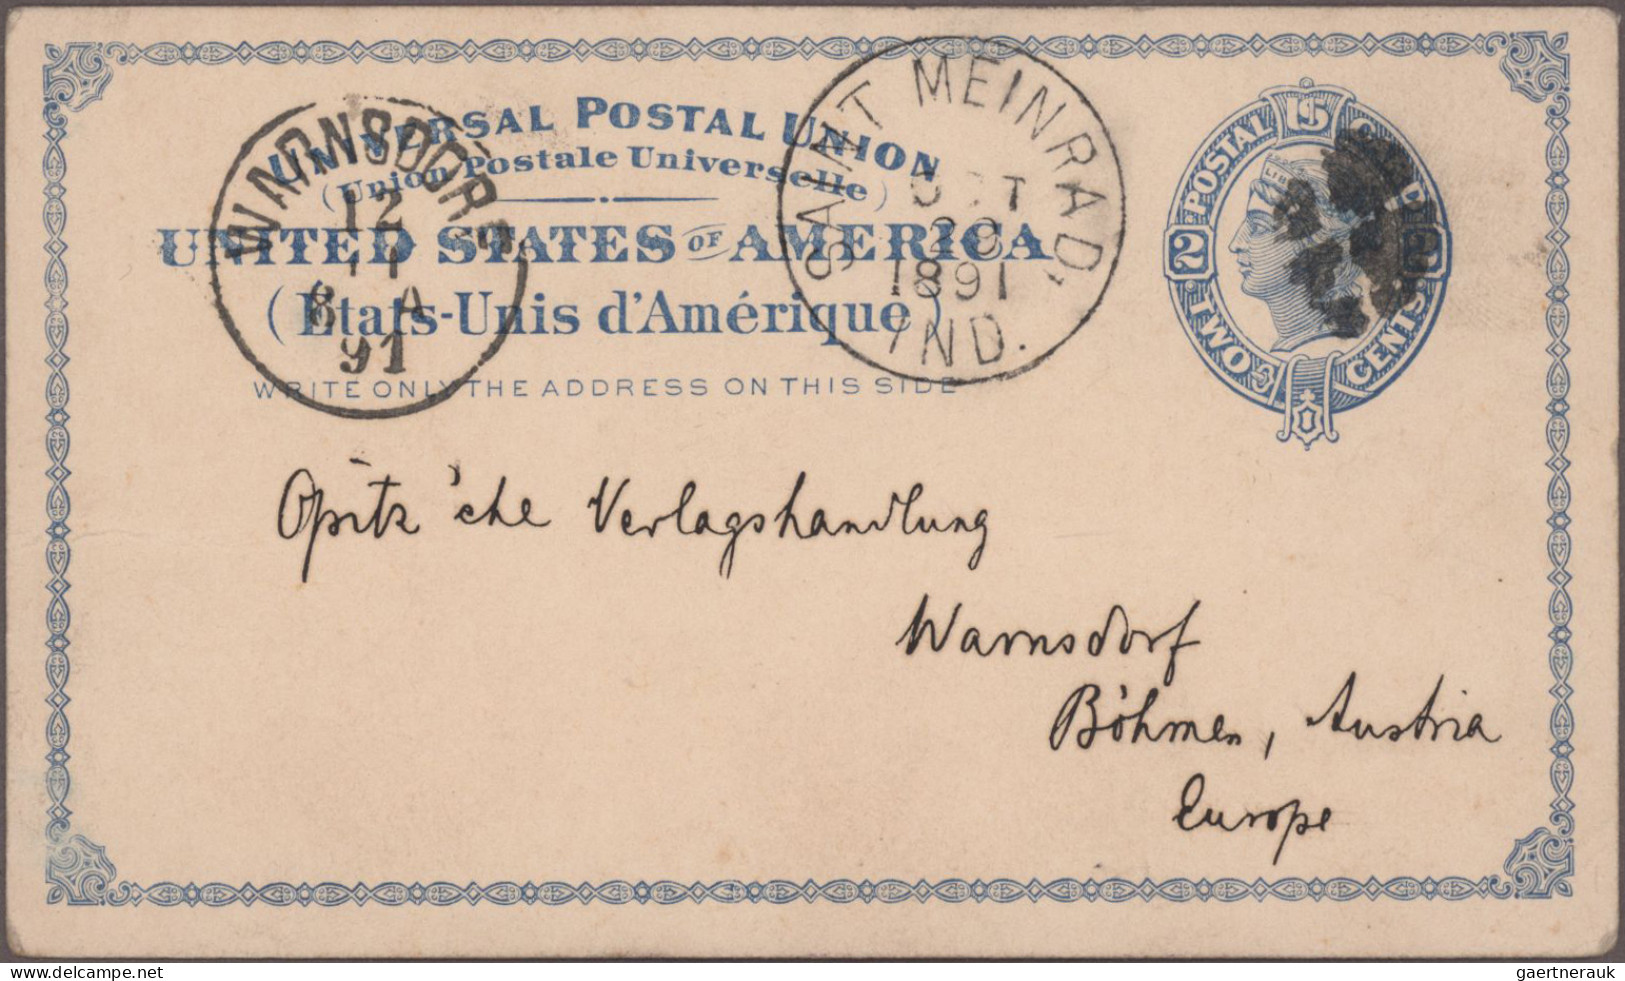 UNIVERSAL POSTAL UNION
(Union Postale Universelle)
UNITED STATES OF AMERICA
(Etats-Unis d'Amérique)
WRITE ONLY THE ADDRESS ON THIS SIDE
WARNSDORF
12
11
8 A
91
SAINT MEINRAD,
OCT
29
1891
IND.
U.S. POSTAL CARD
2 2
TWO CENTS
Opitz'che Verlagshandlung
Warnsdorf
Böhmen, Austria
Europe
www.delcampe.net
gaertnerauk